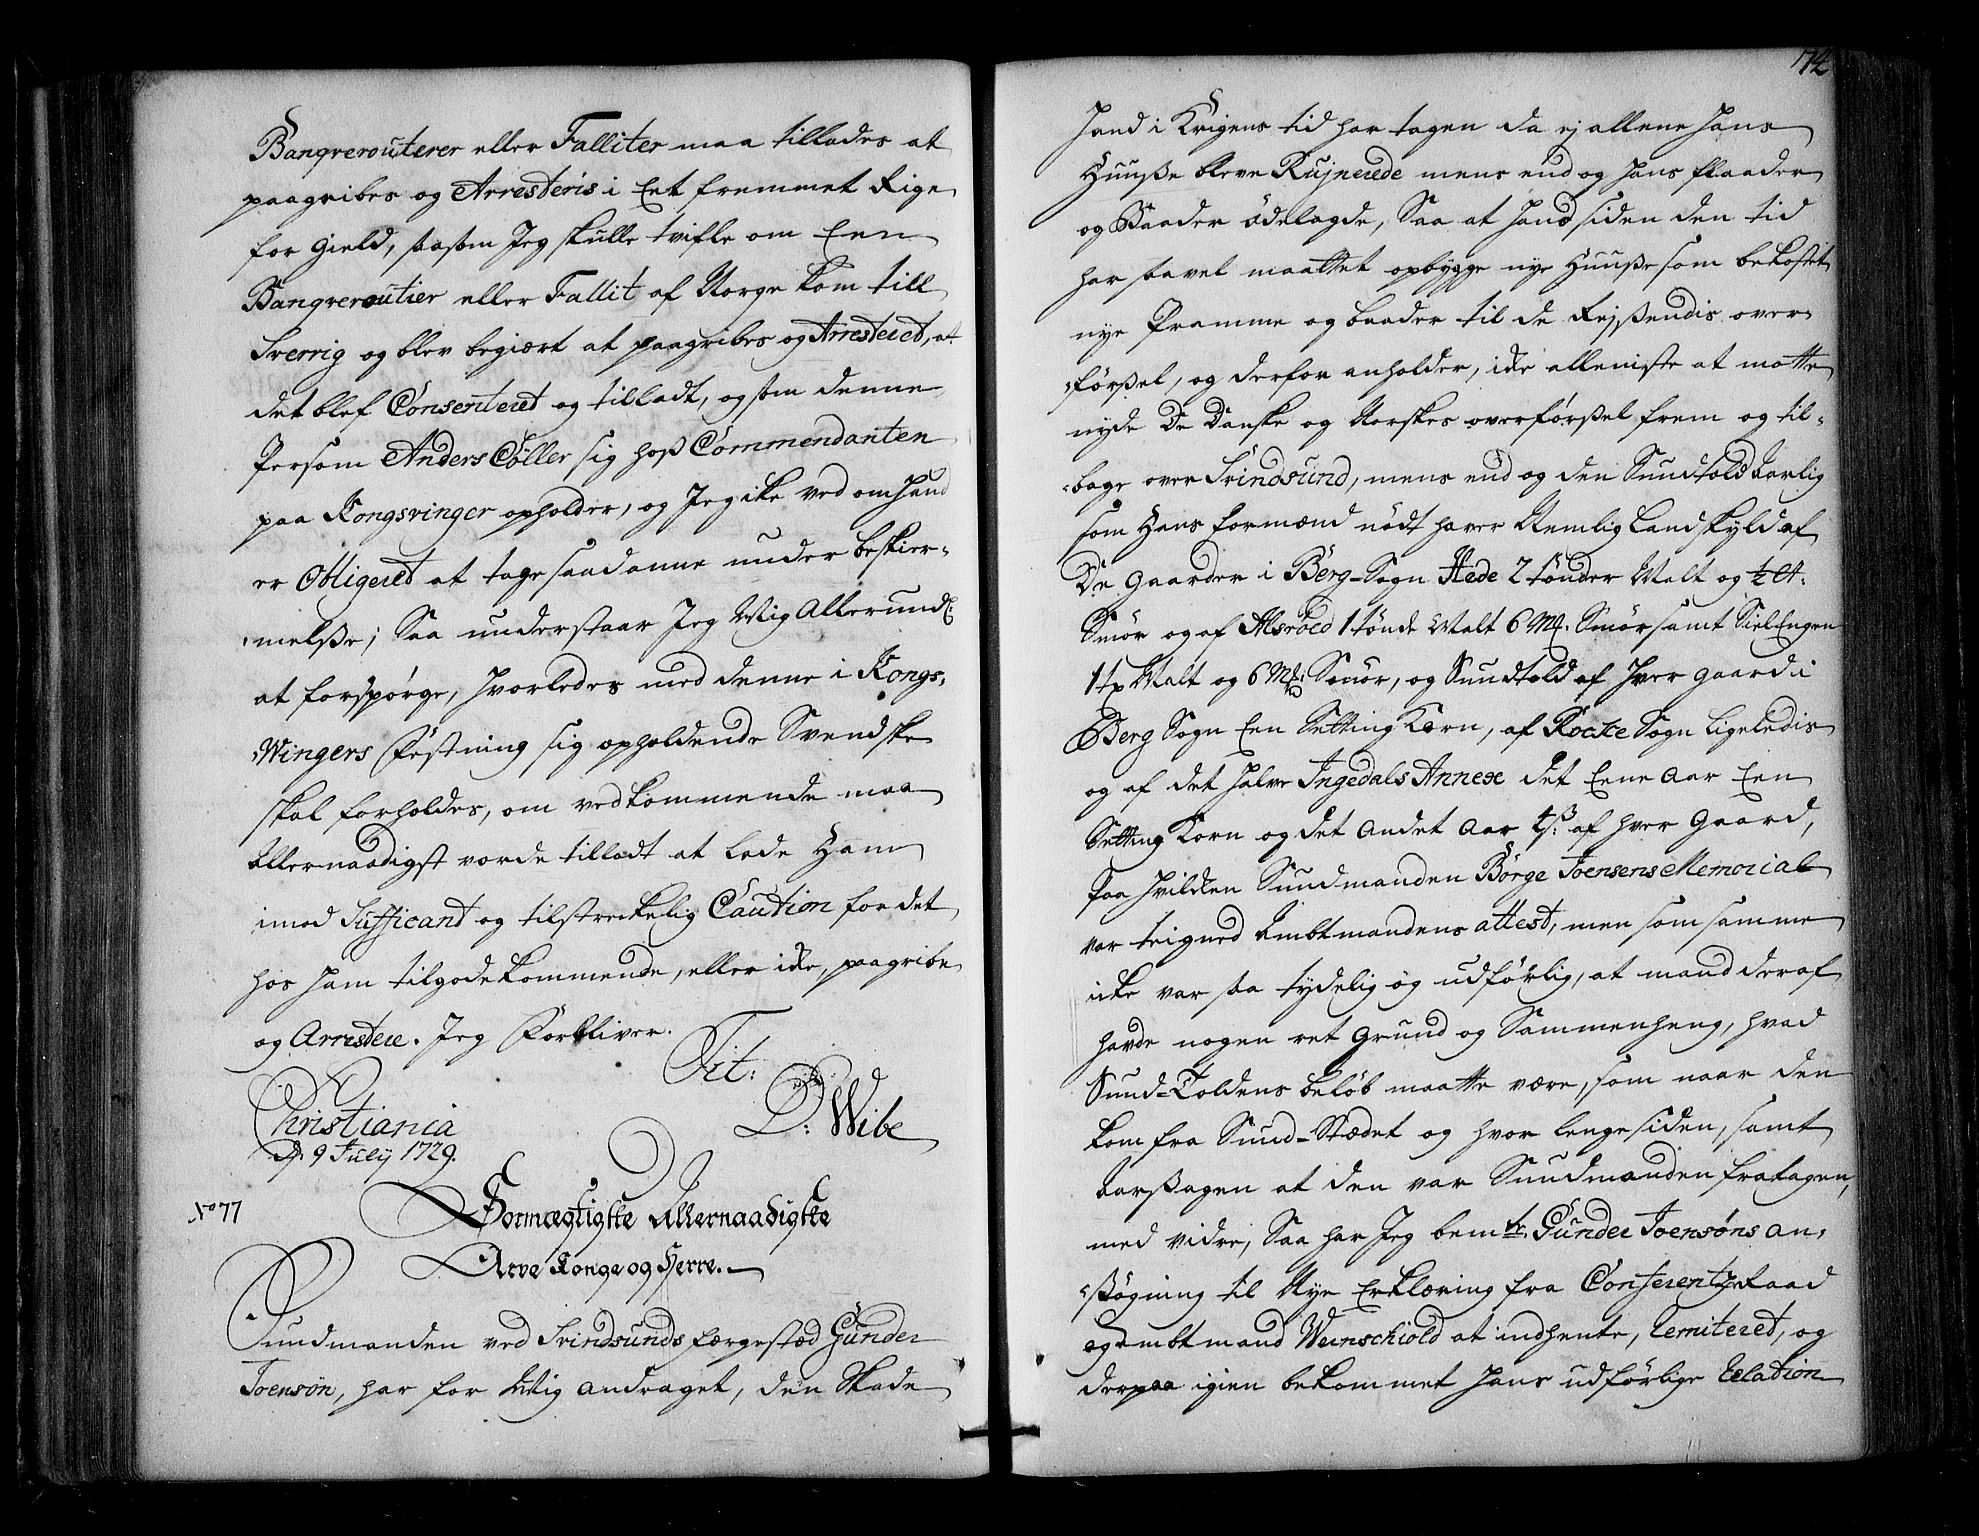 Banqverouterer eller Falliter maa tillades at
paagribes og Arresteris i Eet fremmet Rige
for gield, saasom Jeg skulle tvifle om Een
Banqveroutier eller Fallit af Norge kom till
Sverrig og blev begiært at paagribes og Arresteret, at
det blef Consenteret og tilladt, og som denne
Persom Anders Cöller sig hoß Commendanten
paa Kongsvinger opholder, og Jeg ikke ved om hand
er Obligeret at tage saadanne under beskier-
melße; Saa understaar Jeg Mig Allerund:
at forspörge, hvorledes med denne i Kongs-
Wingers Fæstning sig opholdende Svendske
skal forholdes, om vedkommende maa
Allernaadigst vorde tilladt at lade Ham
imod Sufficant og tilstreckelig Caution for det
hos ham tilgodekommende, eller icke, paagribe
og Arrestere. Jeg Forbliver.
Tit:
D: Wibe
Christiania
D. 9 July 1729.
No 77
Stormægtigste Allernaadigste
Arve Konge og Herre.
Sundmanden ved Svindsunds færgestæd Gunder
Joensön, har for Mig andraget, den Skade
72
hand i Krigens tid har tagen da ej allene hans
Huuße bleve Rujnerede mens end og hans Flaader
og Baader ödelagde, Saa at hand siden den tid
har savel maattet opbygge nye Huuße som bekostet
nye Pramme og baader til de Rejßendis over-
förßel, og derfor anholder, icke alleniste at motte
nyde De Danske og Norskes overförßel frem og til-
bage over Svindsund, mens end og den Sundtold aarlig
som Hans formænd nödt haver Nemlig Landskyld af
De gaarder i Berg-Sogn Hede 2 tönder Malt og ½ ℔:
Smör og af Alsröed 1 tönde Malt 6 Mk: Smör samt Siel Engen
1 tp Malt og 6 Mk: Smör, og Sundtold af hver gaard i
Berg Sogn Een Setting Korn, af Rocke Sogn ligeledis
og af det halve Ingedals Annex det Eene Aar Een
Setting Korn og det Andet Aar tß: af hver Gaard,
Paa hvilken Sundmanden Börge Joensens Memorial
var teigned Ambtmandens attest, men som samme
icke var saa tydelig og udförlig, at mand deraf
havde nogen ret Grund og Sammenheng, hvad
Sund-Toldens belöb maatte være, som naar den
kom fra Sund-Stædet og hvor lenge siden, samt
Aarßagen at den var Sundmanden fratagen,
med vidre, Saa har Jeg bemte. Gunder Joensöns an-
ßögning til Nye Erklæring fra Conferentz Raad
og ambtmand Wernschiold at indhente, Remiteret, og
derpaa igien bekommet hans udförlige Relation